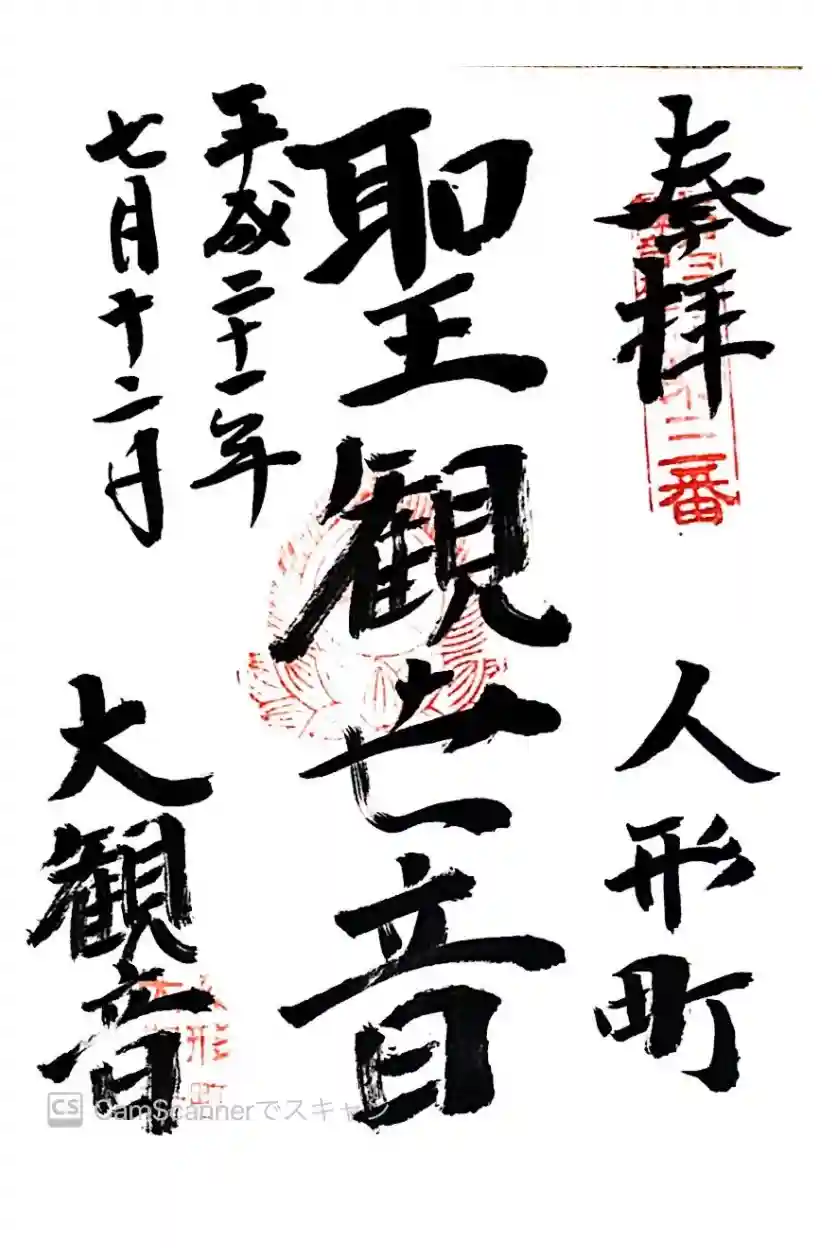 奉拝
三番
人形町
聖観世音
平成二十一年
七月十二日
大観音
人形町
CS CamScannerでスキャン